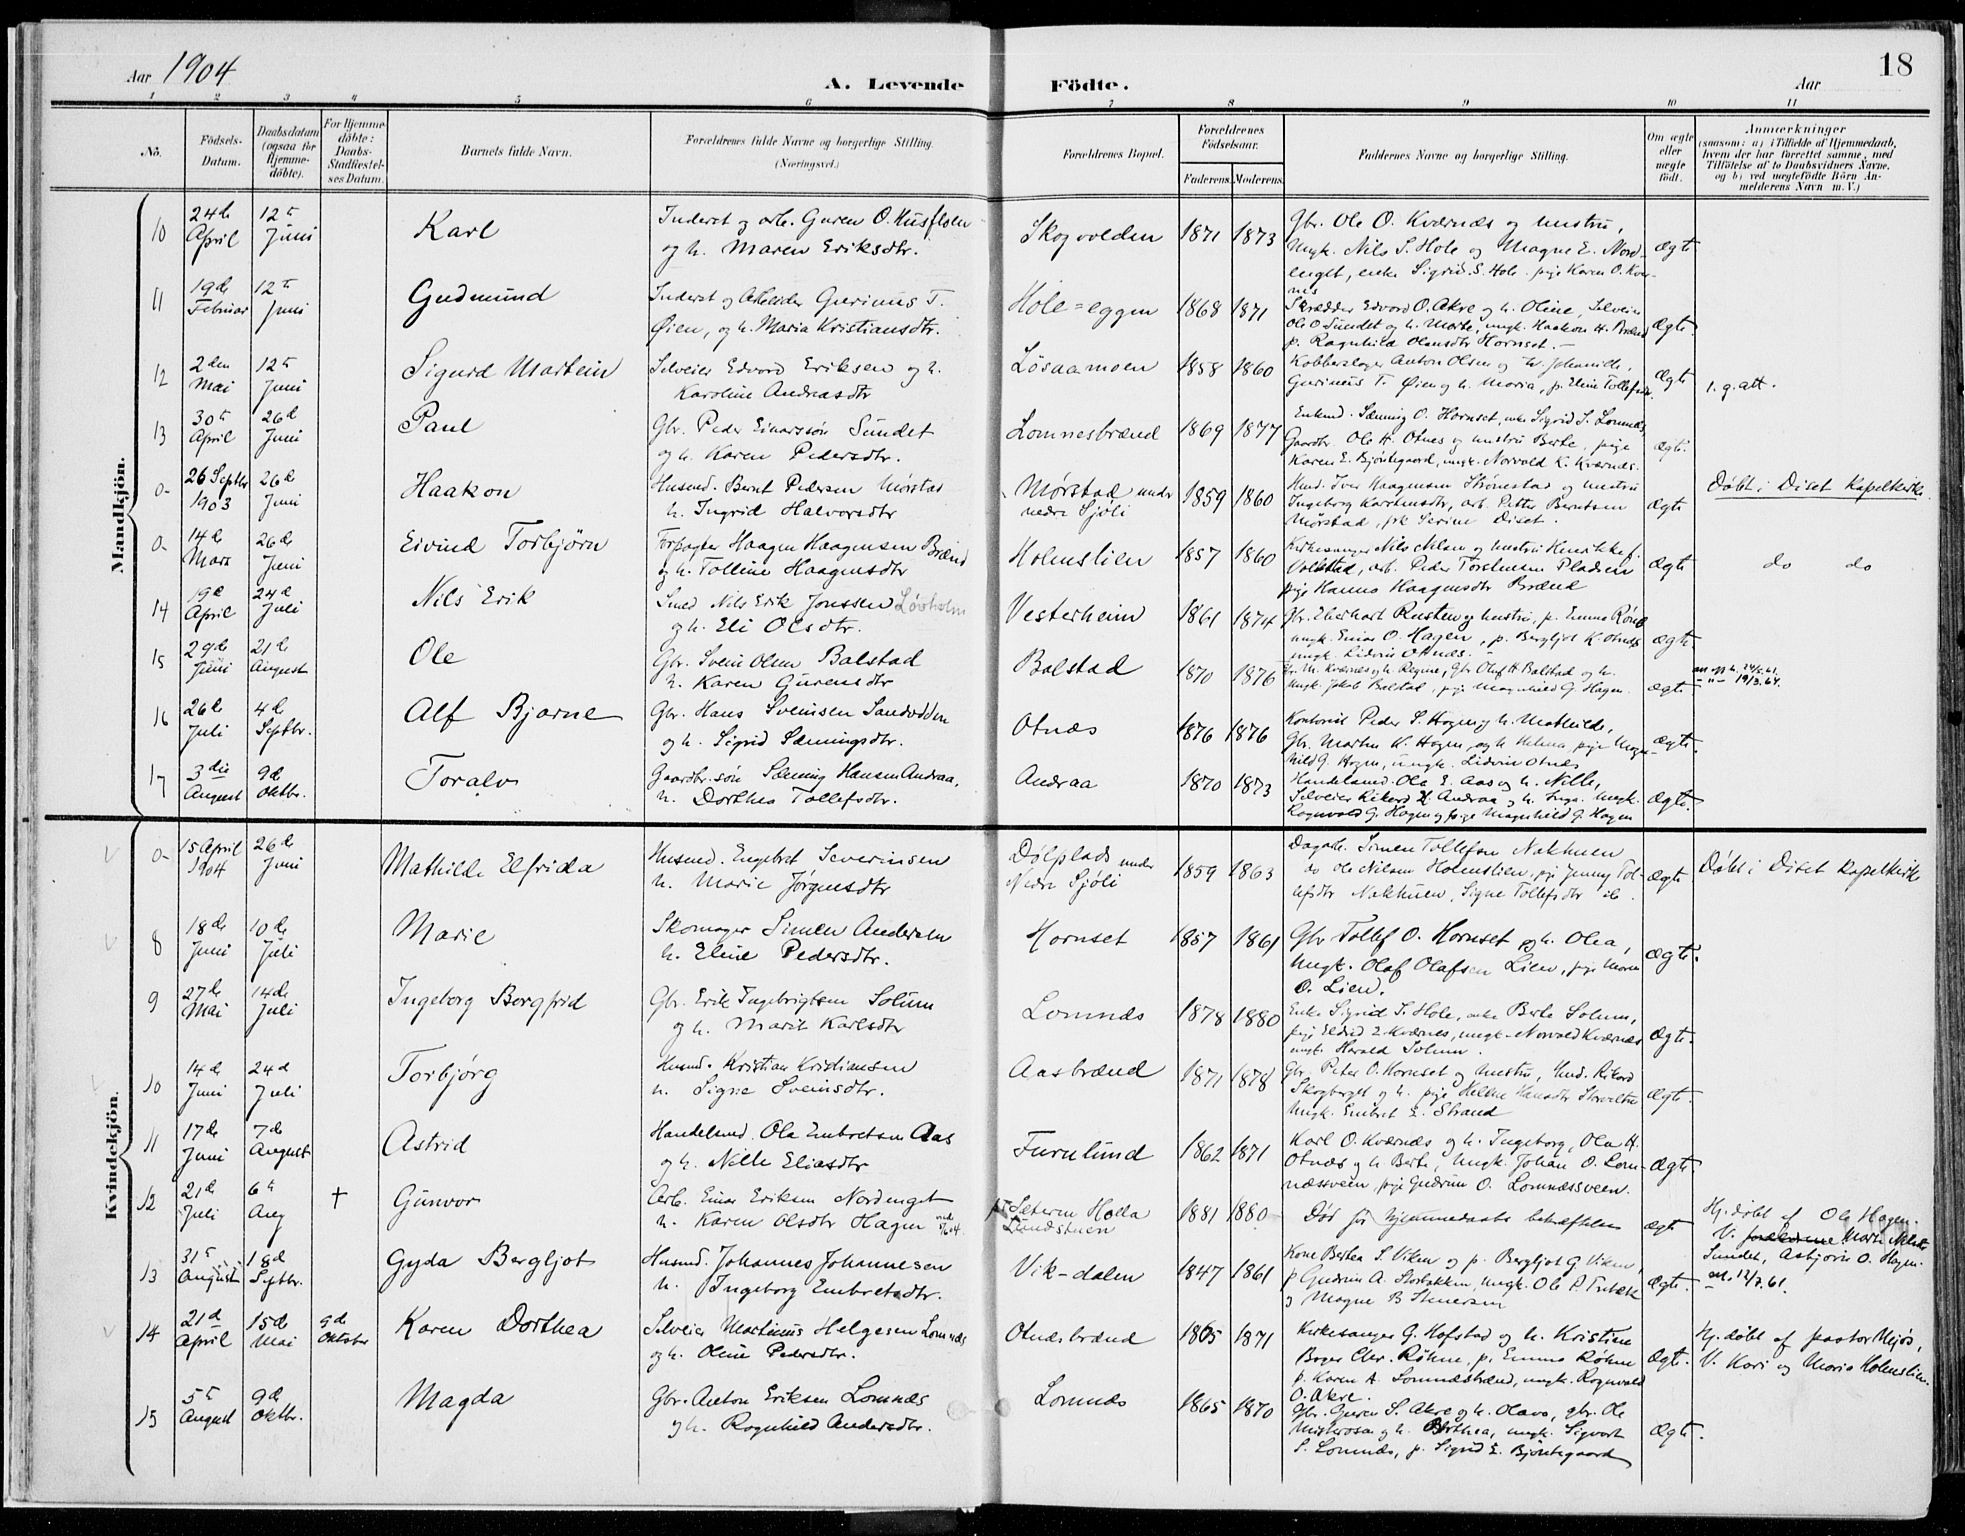 Aar 1904
A. Levende Födte.
Aar
18
1 2 3 4 5 6 7 8 9 10 11
No.
Födsels-Datum.
Daabsdatum (ogsaa for Hjemme-döbte).
For Hjemme-döbte: Daabs-Stadfæstel-ses Datum.
Barnets fulde Navn.
Forældrenes fulde Navne og borgerlige Stilling.
(Næringsvei.)
Forældrenes Bopæl.
Forældrenes Födselsaar.
Faderens. Moderens.
Faddernes Navne og borgerlige Stilling.
Om ægte eller uægte födt.
Anmærkninger
(saasom: a) i Tilfælde af Hjemmedaab,
hvem der har forrettet samme, med
Tilföielse af to Daabsvidners Navne,
og b) ved uægtefödte Börn An-
melderens Navn m. V.)
Mandkjön.
10 24de April 12te Juni Karl
Inderst og arb. Guren O. Husfloen
og h. Maren Eriksdtr.
Skogvolden 1871 1873
Gbr. Ole O. Kværnæs og hustru,
Ungk. Nils S. Hole og Magne E. Nord-
enget, enke Sigrid S. Hole, pige Karen O. Kvær-
næs
Ægte
11 19de Februar 12te Juni Gudmund
Inderst og Arbeider Gurinus T.
Øien, og h. Maria Kristiansdtr.
Hole=eggen 1868 1871
Skrædder Edvard O. Akre og h. Oline, Selveier
Ole O Sundet og h. Marte, ungk. Haakon H. Brænd
p. Ragnhild Olausdtr Hornset.
Ægte.
12 2den Mai 12te Juni Sigurd Martein
Selveier Edvard Eriksen og h.
Karoline Andreasdtr
Løsaamoen 1858 1860
Kobberslager Anton Olsen og h. Johannide,
Gurinus T. Øien og h. Maria, p. Eline Tollefsdtr.
Ægte
1. g. att.
13 30te April 26de Juni Paul
Gbr. Peder Einarssøn Sundet
og h. Karen Pedersdtr.
Lomnesbrænd 1869 1877
Enkemd. Sæming O. Hornset, enke Sigrid S. Lomnæs,
Gaardbr. Ole H. Otnes og hustru Berte, pige
Karen E. Bjøntegaard, ungk. Norvald K. Kværnæs.
Ægte.
0- 26 Septbr 1903 26de Juni Haakon
Husmd. Bernt Pedersen Mørstad
h. Ingrid Halvorsdtr
Mørstad under
nedre Sjöli
1859 1860
Husmd. Iver Haagensen Strønestad og hustru
Ingeborg Karensdtr, arb. Petter Berntsen
Mørstad, frk Serine Diset.
Ægte
Døbt i Diset Kapelkirke.
0- 14de Mars 26de Juni Eivind Torbjørn
Forpagter Haagen Haagensen Brænd
og h. Tolline Haagensdtr
Holmslien 1857 1860
Kirkesanger Nils Nilsen og hustru Henrikke f.
Volstad, arb. Peder Torstensen Pladsen
pige Hanna Haagensdtr Brænd
Ægte
do do
14 19de April 24de Juli Nils Erik
Smed Nils Erik Jonssen Løvholm
og h. Eli Olsdtr.
Vesterheim 1861 1874
Gbr. Eberhart Rusten og hustru, p. Emma Röhne
ungk. Einar O. Hagen, p. Bergljot K. Otnæs
ungk. Lidvin Otnæs.
Ægte.
15 29de Juni 21de August Ole
Gbr. Svein Olsen Balstad
h. Karen Gurensdtr
Balstad 1870 1876
M. Kværnes og h. Regine, Gbr Oluf H. Balstad og h.
Ungk. Jakob Balstad, pige Magnhild G. Hagen.
Ægte.
19/3.64.
16 26de Juli 4de Septbr. Alf Bjarne
Gbr. Hans Sveinsen Sandodden
og h. Sigrid Sæmingsdtr.
Otnæs 1876 1876
Kontorist Peder S. Hagen og h. Mathilde,
Gbr. Martin K. Hagen, og h Helena, pige Magn-
hild G. Hagen, ungk. Lidvin Otnæs
Ægte.
17 3die August 9de Oktbr. Toralv
Gaardbr. søn Sæming Hansen Andraa,
h. Dorthea Tollefsdtr.
Andraa 1870 1873
Handelsmd. Ola E. Aas og h. Nille,
Selveier Rikard H Andraa og h. Inga. Ungk.
Ragnvald G. Hagen og pige Magnhild G. Hagen
Ægte.
Kvindekjön.
0- 15 April 1904 26de Juni Mathilde Elfrida
Husmd. Engebret Severinsen
h. Marie Jørgensdtr
Dølplads under
Nedre Sjöli
1859 1863
Dagarb. Simen Tollefsen Nakkuen
do Ole Nilsen Holmslien, pige Jenny Tol-
lefsdtr Nakkuen, Signe Tollefsdtr ib.
Ægte
Døbt i Diset Kapelkirke
8 18de Juni 10de Juli Marie
Skomager Simen Andersen
h. Eline Pedersdtr.
Hornset 1857 1861
Gbr Tollef O. Hornset og h. Olea,
Ungk. Olaf Olafsen Lien, pige Maren
O. Lien.
Ægte.
9 27de Mai 14de Juli Ingeborg Borgfrid
Gbr. Erik Ingebrigtsen Solum
og h. Marit Karlsdtr
Lomnæs 1878 1880
Enke Sigrid S. Hole, enke Berte Solum,
pige Eldrid E. Kværnes, ungk. Norvald Kværnæs
ungk. Harald Solum.
Ægte.
10 14de Juni 24de Juli Torbjørg
Husmd. Kristian Kristiansen
h. Signe Sveinsdtr.
Aasbrænd 1871 1878
Gbr. Peter O. Hornset og hustru, Husmd. Rikard
Skogberget og h. pige Helene Hansdtr Storvolten
Ungk. Embret E. Strand
Ægte.
11 17de Juni 7de August Astrid
Handelsmd. Ola Embretsen Aas
og h. Nille Eliasdtr
Furulund 1862 1871
Karl O. Kværnæs og h. Ingeborg, Ola H.
Otnæs og h Berte, Ungk. Johan O. Lom-
næssveen, pige Gudrun O. Lomnæssveen.
Ægte
12 21de Juli 6te Aug † Gunvor
Arb. Einar Eriksen Nordenget
h. Karen Olsdtr Hagen
på Seteren Holla
Lundstuen
1881 1880
Død før hjemmedaabs bekræftelsen
ægte
Hj. døbt af Ola Hagen.
V. forældrene Marte
Sundet, Asbjørn O. Hagen.
13 31te August 18de Septbr. Gyda Bergljot
Husmd. Johannes Johannesen
h. Ingeborg Embretsdtr.
Vik-dalen 1847 1861
Kone Berthea S. Viken og p. Bergljot G. Viken,
p Gudrun A. Storbækken, ungk. Ole P. Fubæk
og Magne B Stenersen
Ægte.
att. 12/7.61.
14 21de April 15de Mai 9de Oktober Karen Dorthea
Selveier Martinus Helgesen Lomnæs
og h. Oline Pedersdtr.
Otnæsbrænd 1865 1871
Kirkesanger G. Hofstad og h. Kristine
Bager Chr. Röhne, p. Emma Röhne
p. Karen A. Lomnæsbrænd, ungk. Ragnvald
O. Akre.
Ægte.
Hj. døbt af pastor Mejø,
V. Kari og Maria Holmslien.
15 5te August 9de Oktbr. Magda
Gbr. Anton Eriksen Lomnæs
og h. Ragnhild Andersdtr.
Lomnæs 1865 1870
Gbr. Guren S. Akre og h. Olava, gbr. Ole
Misterosen og h. Berthea, ungk. Sigvart
S. Lomnæs, p. Sigrid E. Bjøntegaard
Ægte.